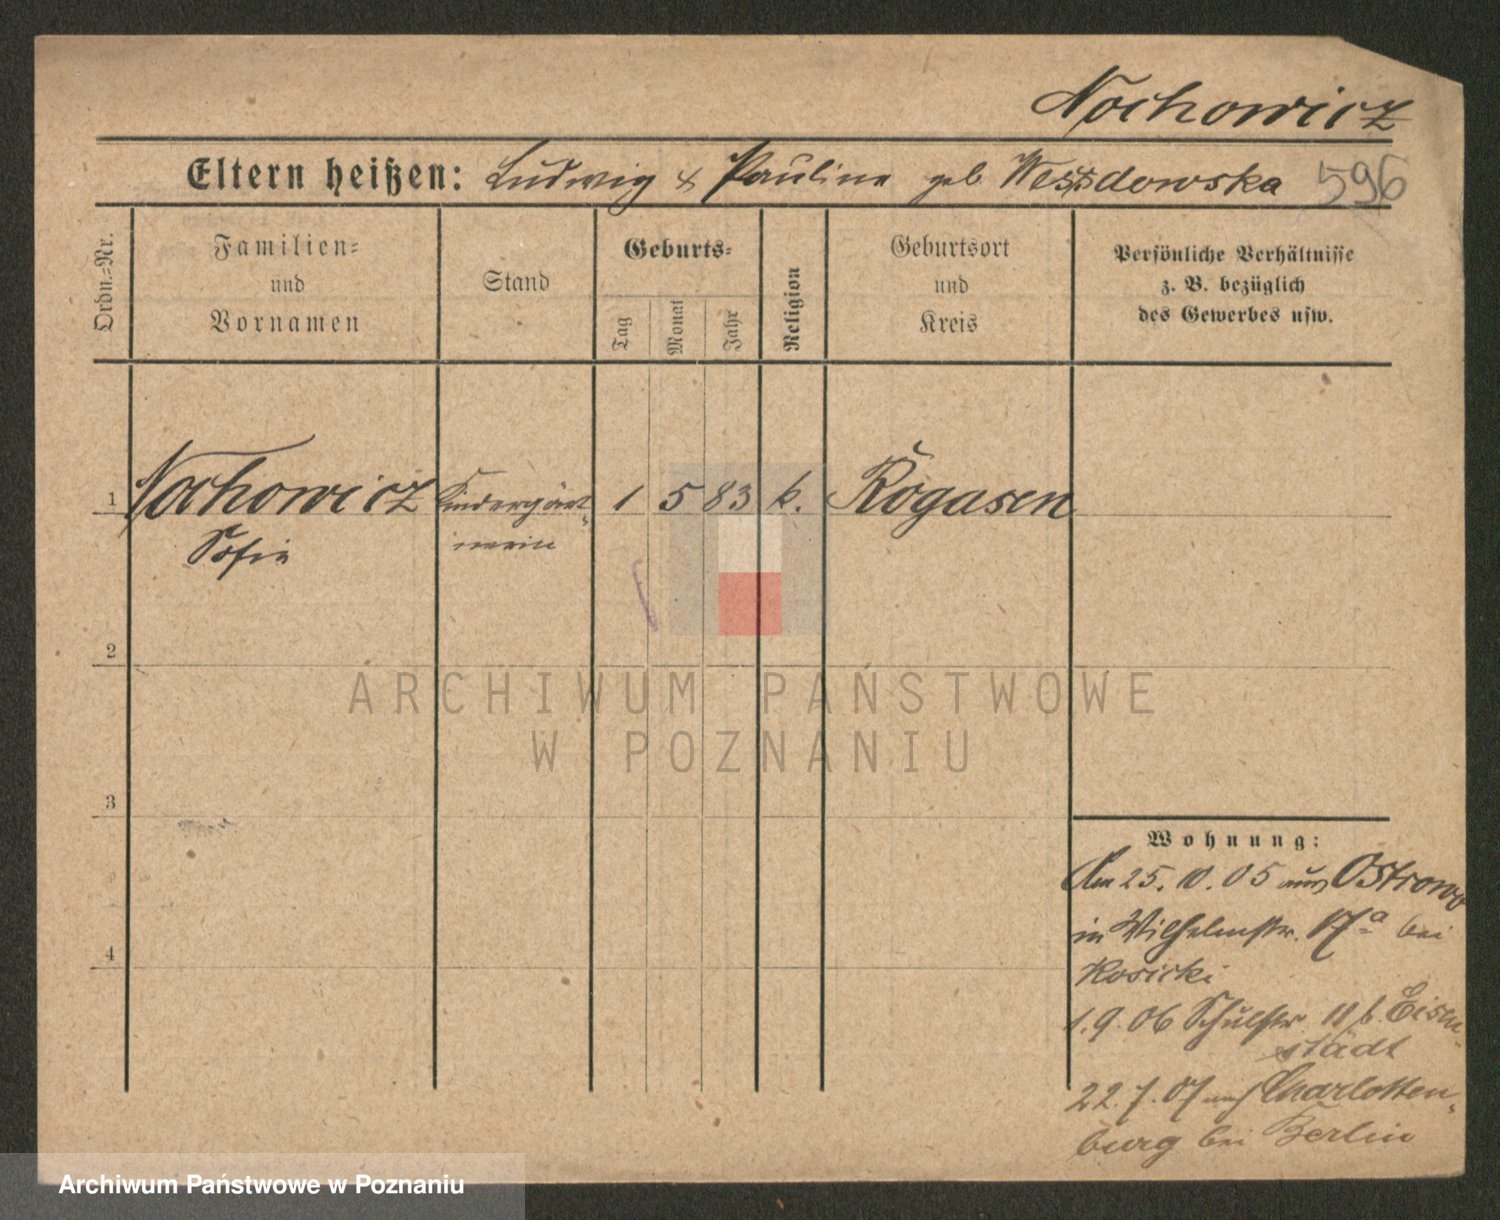 Nochowicz
Eltern heißen: Ludwig & Pauline geb 596
Ordn.=Nr.
Familien=
und
Vornamen
Stand
Geburts=
Tag
Monat
Jahr
Religion
Geburtsort
und
Kreis
Persönliche Verhältnisse
z. B. bezüglich
des Gewerbes usw.
1 Nochowicz Kindergärt= 1 5 83 k. Rogasen
Sofie nerin
2
3
4
Wohnung:
Am 25. 10. 05 aus Ostrowo
in Wilhelmstr. 17a bei
Rosicki
1. 9. 06 Schulstr 11 b. Eisen=
städt
22. 7. 07 nach Charlotten=
burg bei Berlin
ARCHIWUM PAŃSTWOWE
W POZNANIU
Archiwum Państwowe w Poznaniu